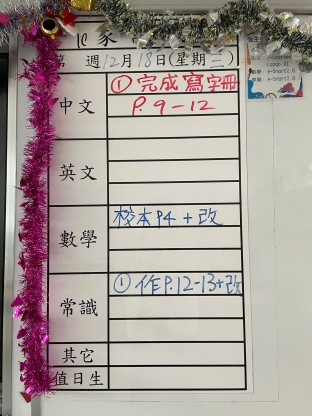 1C 家
第 週12月18日(星期三)
中文
① 完成寫字冊
P. 9-12
英文
數學
校本P4 + 改
常識
① 作P.12-13+改
其它
值日生